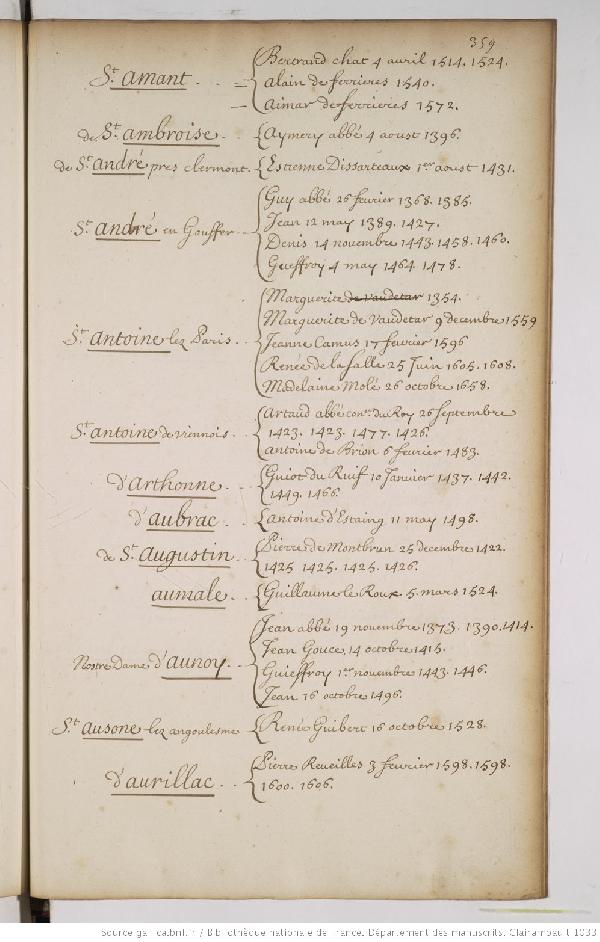 359
St. amant . = { Bertrand chat 4 auril 1514. 1524.
alain de ferrieres 1540.
aimar de ferrieres 1572.
de St. ambroise . { Aymery abbé 4 aoust 1396.
de St. andré pres clermont . { Estienne Dissarteaux 1er aoust 1431.
St. andré en Gouffer { Guy abbé 26 feurier 1368. 1385.
Jean 12 may 1389. 1427.
Denis 14 nouembre 1443. 1458. 1460.
Gueffroy 4 may 1464. 1478.
St. antoine lez Paris { Marguerite de Vaudetar 1354.
Marguerite de Vaudetar 9 decembre 1559
Jeanne Camus 17 feurier 1596
Renée de la salle 25 Juin 1605. 1608.
Madelaine Molé 26 octobre 1658.
St. antoine de viennois . { Artaud abbé conr. du Roy 26 septembre
1423. 1423. 1477. 1426.
antoine de Brion 6 feurier 1483.
d'arthonne { Guiot du Ruif 10 Januier 1437. 1442.
1449. 1466.
d'aubrac { antoine d'Estaing 11 may 1498.
de St. augustin { Pierre de Montbrun 25 decembre 1422.
1425. 1425. 1425. 1426.
aumale . { Guillaume le Roux 5. mars 1524.
Nostre Dame d'aunoy { Jean abbé 19 nouembre 1373. 1390. 1414.
Jean Gouce 14 octobre 1415.
Guieffroy 1er nouembre 1443. 1446.
Jean 16 octobre 1496.
St. ausone lez angoulesme { Renée Guibert 16 octobre 1528.
d'aurillac . { Pierre Reueilles 3 feurier 1598. 1598.
1600. 1606.
Source gallica.bnf.fr / Bibliothèque nationale de France. Département des manuscrits. Clairambault 1033